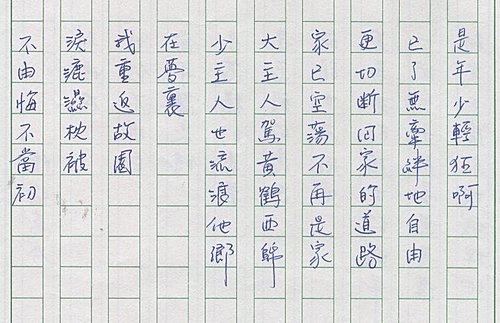 是年少輕狂啊
已了無牽絆地自由
更切斷回家的道路
家已空蕩不再是家
大主人駕黃鶴西歸
少主人也流浪他鄉
在夢裏
我重返故園
淚漉濕枕被
不由悔不當初